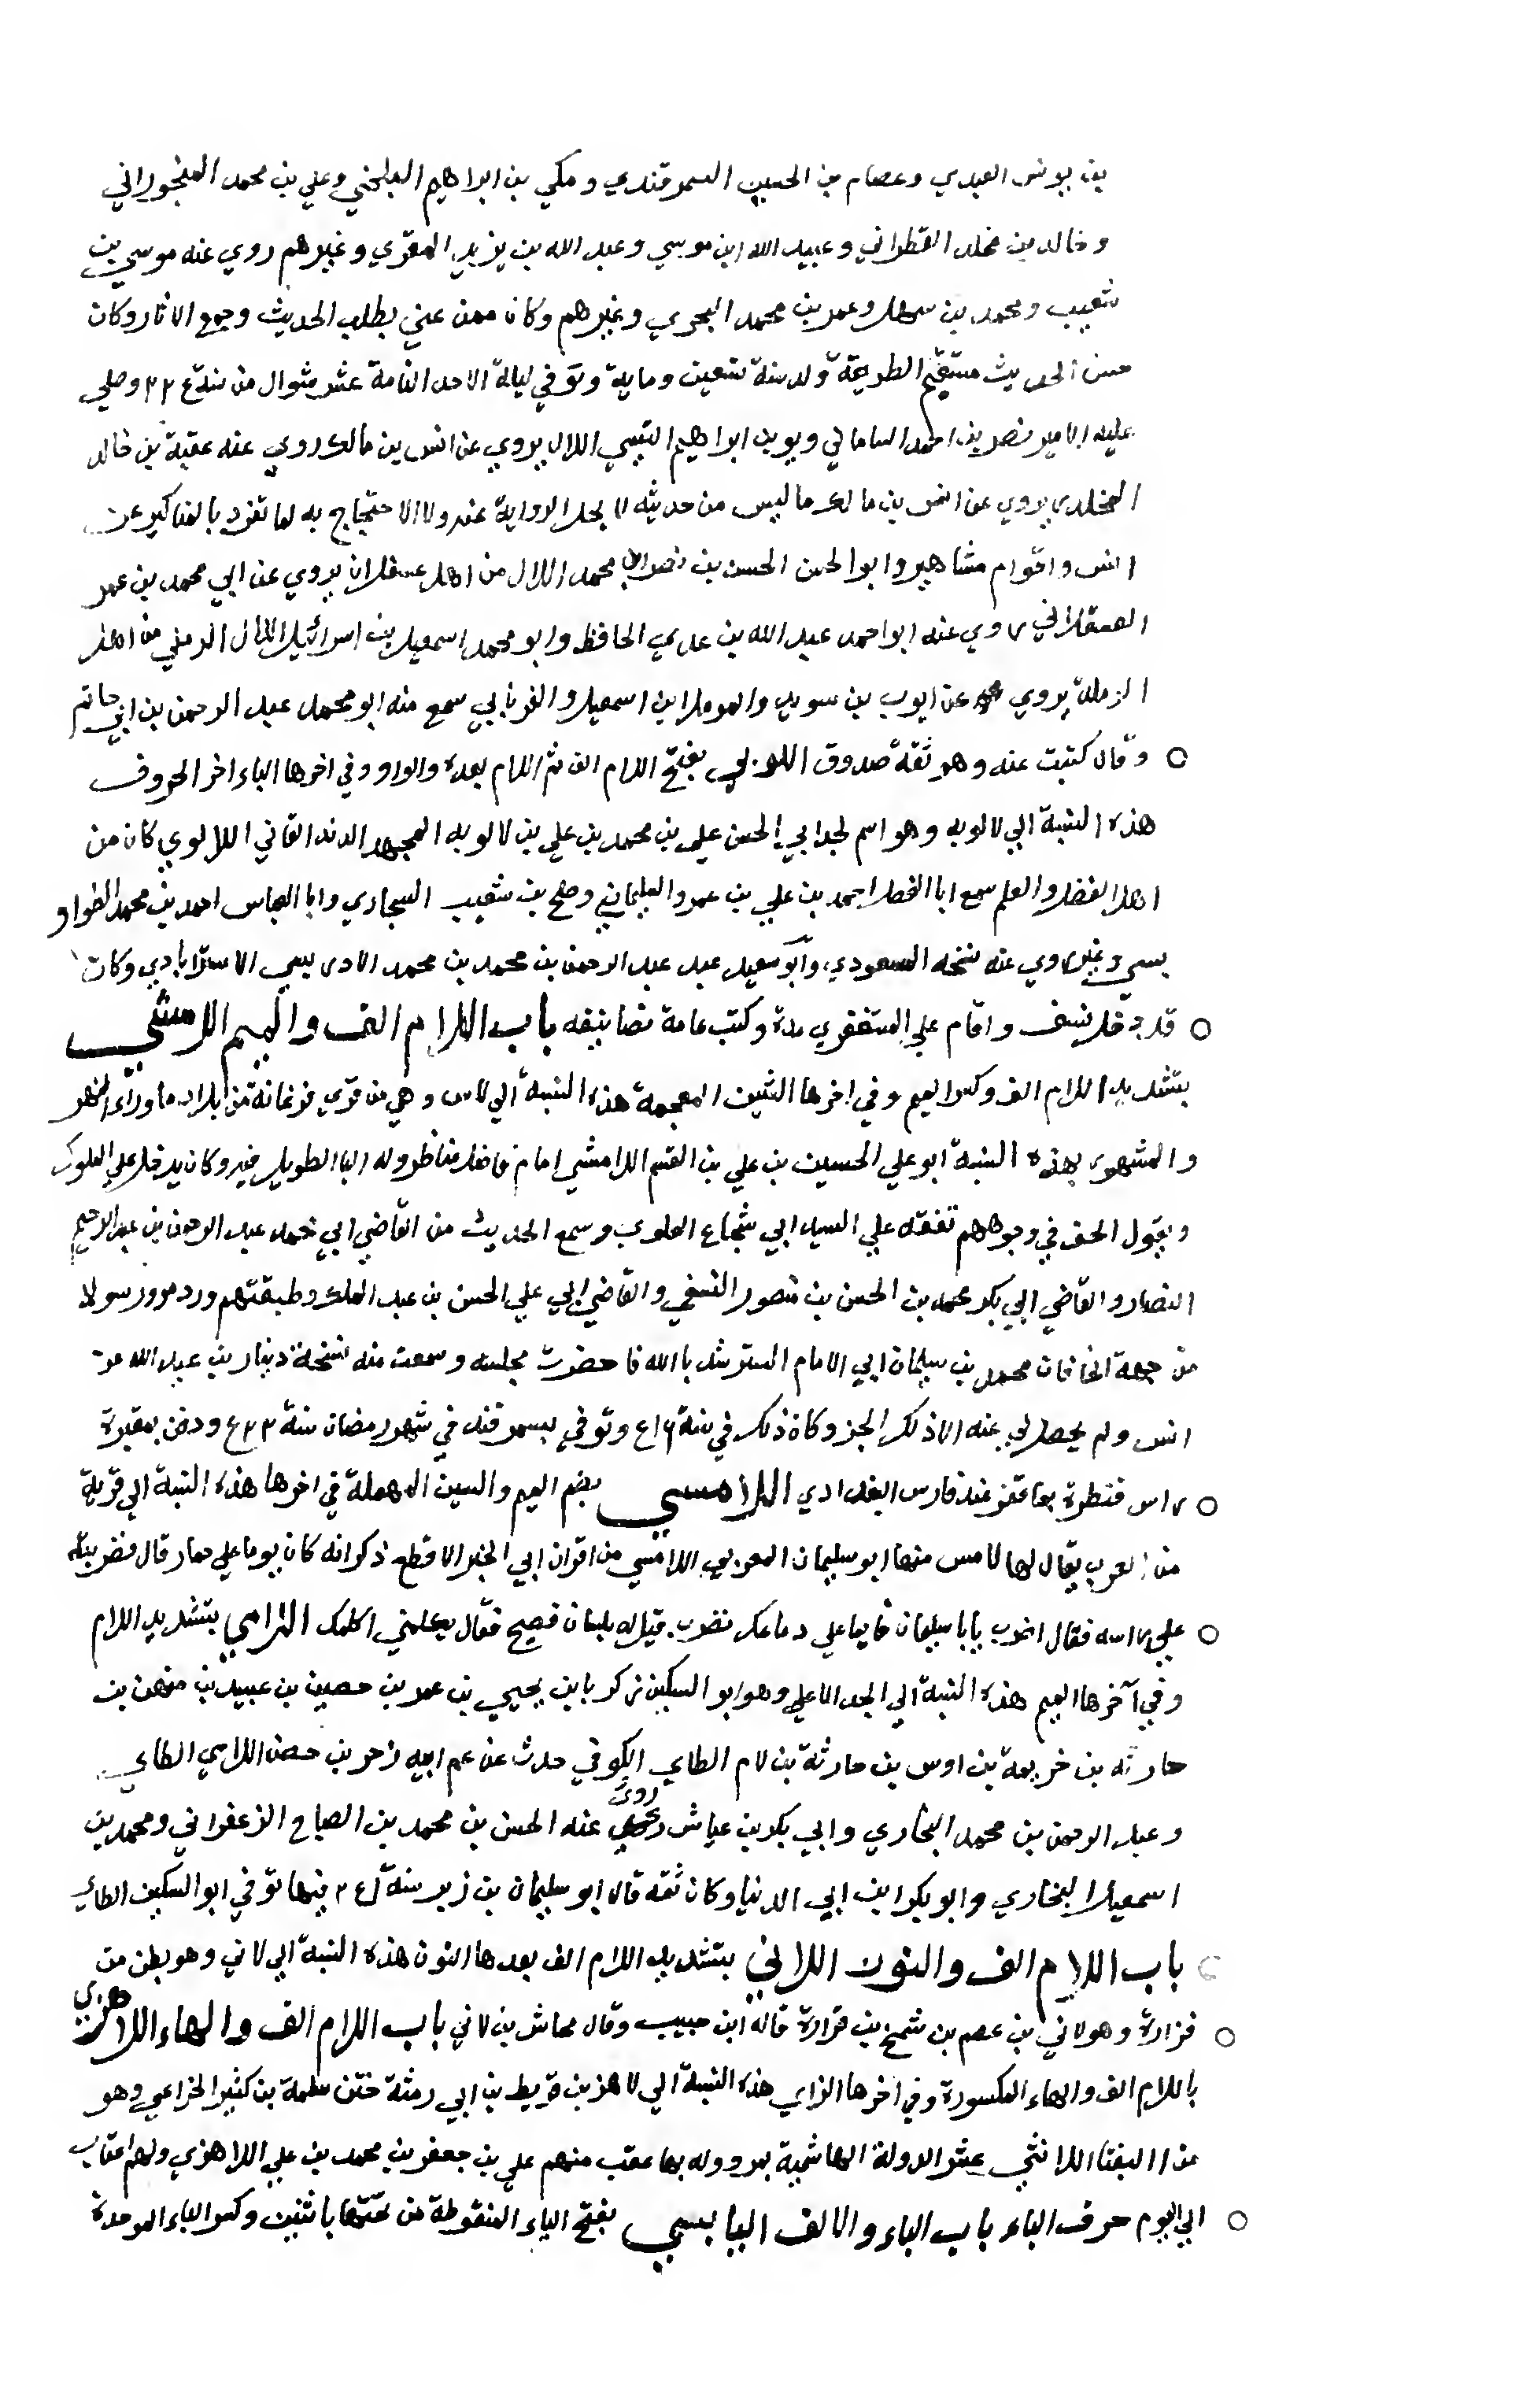 بن يونس العبدي وعصام بن الحسين السمرقندي ومكي بن ابراهيم البلخي وعلي بن محمد المنجوراني
وخالد بن مخلد القطواني وعبيد الله ابن موسي وعبد الله بن يزيد المقري وغيرهم روي عنه موسي بن
شعيب ومحمد بن سهل وعمر بن محمد البحري وغيرهم وكان ممن عني بطلب الحديث وجمع الاثار وكان
حسن الحديث مستقيم الطريقة ولد سنة تسعين وماية وتوفي ليلة الاحد الثامة عشر شوال من سنة وصلي
عليه الامير نصر بن احمد الساماني وبو بن ابراهيم التيمي اللال يروي عن انس بن مالك روي عنه عقبة بن خالد
المخلدي يروي عن انس بن مالك ما ليس من حديثه لا يحل الرواية عنه ولا الاحتجاج به لما تفرد بالمناكير عن
انس واقوام مشاهير وابو الحسن الحسن بن نصر ابن محمد اللال من اهل عسقلان يروي عن ابي محمد بن عمر
العسقلاني روي عنه ابو احمد عبد الله بن عدي الحافظ وابو محمد اسمعيل بن اسرائيل اللال الرملي من اهل
الرملة يروي عن ايوب بن سويد والمومل ابن اسمعيل والفريابي سمع منه ابو محمد عبد الرحمن بن ابي حاتم
وقال كتبت عنه وهو ثقة صدوق اللالوي بفتح اللام الف ثم اللام بعده والواو وفي اخرها الياء اخر الحروف
هذه النسبة الي لالويه وهو اسم لجد ابي الحسن علي بن محمد بن علي بن لالويه الدندانقاني اللالوي كان من
اهل الفضل والعلم سمع ابا الفضل احمد بن علي بن عمرو السليماني وصلح بن شعيب السجاري وابا العباس احمد بن محمد الطواو
يسي وغيره روي عنه شيخه السعودي وابو سعيد عبد عبد الرحمن بن محمد بن محمد الادريسي الاستراباذي وكان
قد دخل نسف واقام علي المستغفري مدة وكتب عامة تصانيفه باب اللام الف والميم اللامشي
بتشديد اللام الف وكسر الميم وفي اخرها الشين المعجمة هذه النسبة الي لامس وهي من قري فرغانة من بلاد ما وراء النهر
والمشهور بهذه النسبة ابو علي الحسين بن علي بن القسم اللامشي امام فاضل مناظر وله البا الطويل فيه وكان يدخل علي الملوك
ويقول الحق في وجوههم تفقه علي السيد ابي شجاع العلوي وسمع الحديث من القاضي ابي محمد عبد الرحمن بن عبد الرحيم
القصار والقاضي ابي بكر محمد بن الحسن بن منصور النسفي والقاضي ابي علي الحسن بن عبد الملك وطبقتهم ورد مرو رسولا
من جهة الخاقان محمد بن سليمان ابي الامام المسترشد بالله فا حضرت مجلسه وسمعت منه نسخة دينار بن عبد الله عن
انس ولم يحصل لي عنه الا ذلك الجز وكان ذلك في سنة وتوفي بسمرقند في شهر رمضان سنة ودفن بمقبرة
راس قنطرة عند فارس البغدادي اللامسي بضم الميم والسين المهملة في اخرها هذه النسبة الي قرية
من العرب يقال لها لامس منها ابو سليمان المغربي اللامسي من اقران ابي الخير الاقطع ذكر انه كان يوما علي حمار قال فضربته
علي راسه فقال اضرب يابا سليمان فانما علي دماغك تضرب قيل له بلسان فصيح فقال يكلمني اكلمك اللامي بتشديد اللام
وفي آخرها الميم هذه النسبة الي الجد الاعلي وهو ابو السكين زكريا بن يحيي بن عمر بن حصين بن عبيد بن منهب بن
حارثه بن خريمة بن اوس بن حارثة بن لام الطاي الكوفي حدث عن عم ابيه زحر بن حصن اللامي الطاي
وعبد الرحمن بن محمد البخاري وابي بكر بن عياش روي عنه الحسن بن محمد بن الصباح الزعفراني ومحمد بن
اسمعيل البخاري وابو بكر ابن ابي الدنيا وكان ثقه قال ابو سليمان بن زبر سنة فيها توفي ابو السكين الطاي
باب اللام الف والنون اللاني بتشديد اللام الف بعدها النون هذه النسبة الي لاني وهو بطن من
فزارة وهو لاني بن عصم بن شمخ بن فزارة قاله ابن حبيب وقال محاش بن لاني باب اللام الف والهاء اللاهزي
باللام الف والهاء المكسورة وفي اخرها الزاي هذه النسبة الي لاهز بن قريط بن ابي رمثة ختن سلمة بن كثير الخزاعي وهو
من النقبا اللا نثي عشر الدولة الهاشمية بمرو وله بها عقب منهم علي بن جعفر بن محمد بن علي اللاهزي ولهم اعقاب
الي اليوم حرف الياء باب الياء والالف اليابسي بفتح الياء المنقوطة من تحتها باثنين وكسر الباء الموحدة